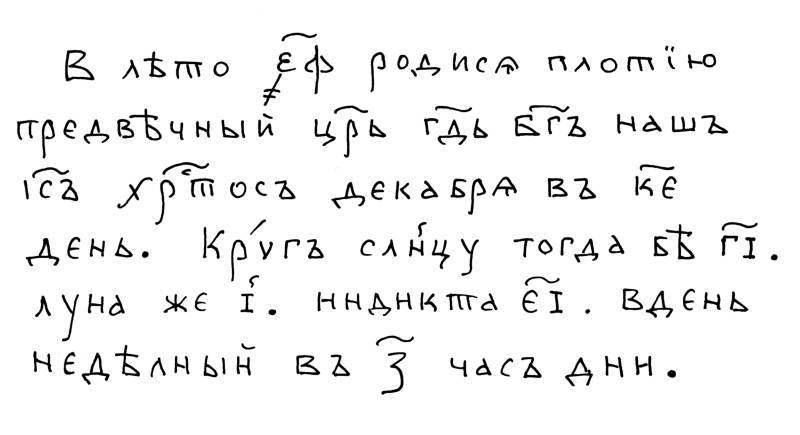 В лѣто ҂е҃ф родисѧ плотїю
предвѣчный цр҃ь гд҃ь бг҃ъ нашъ
іс҃ъ хрⷭ҇тосъ декабрѧ въ ке҃
день. Крꙋ́гъ слн҃цу тогда бѣ г҃і.
луна же і҃. индикта е҃і. вдень
недѣлный въ з҃ часъ дни.